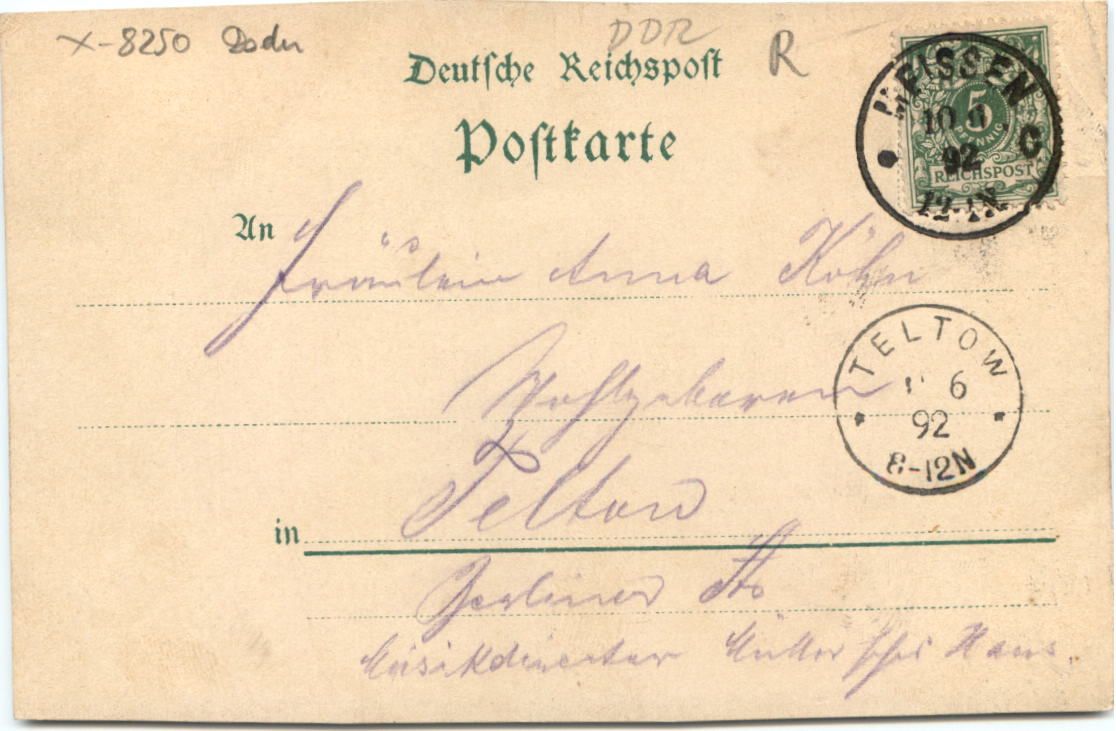 X-8250 DDR R
Deutsche Reichspost
Postkarte
MEISSEN
10 6
92
C
12-1N
5
PFENNIG
REICHSPOST
An Fräulein Anna Köhn
Wohlgeboren
TELTOW
6
92
8-12N
in Teltow
Berliner Str
Musikdirector Müller'sches Haus